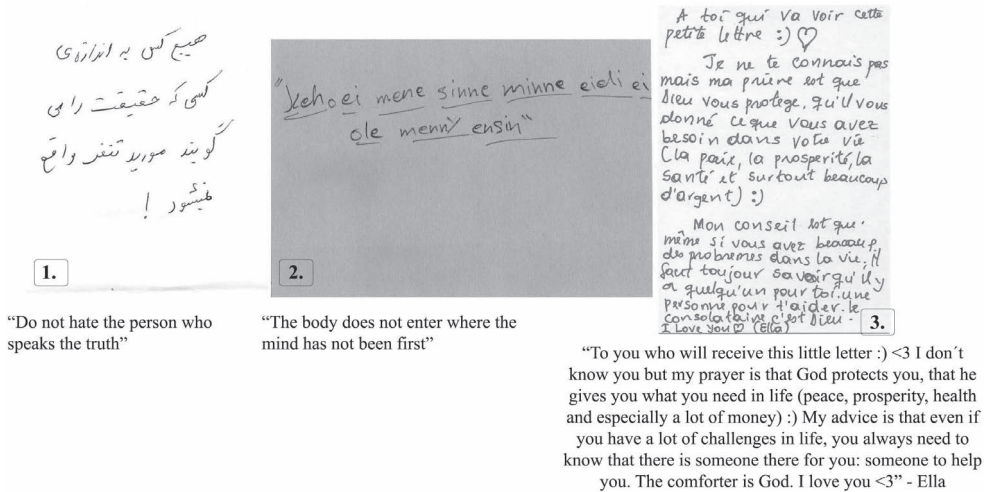 هیچ کس به اندازه‌ی
کسی که حقیقت را می
گویند مورد تنفر واقع
نمیشود !
1.
"Do not hate the person who
speaks the truth"
"Keho ei mene sinne minne eidi ei
ole menny ensin"
2.
"The body does not enter where the
mind has not been first"
A toi qui va voir cette
petite lettre :) ♡
Je ne te connais pas
mais ma prière est que
Dieu vous protege, qu'il vous
donné ce que vous avez
besoin dans votre vie
(la paix, la prosperité, la
santé et surtout beaucoup
d'argent) :)
Mon conseil est que
même si vous avez beaucoup
des probremes dans la vie, il
faut toujour savoir qu'il y
a quelqu'un pour toi. une
personne pour t'aider. le
consolataire c'est Dieu -
I Love you ♡ (Ella)
3.
"To you who will receive this little letter :) <3 I don´t
know you but my prayer is that God protects you, that he
gives you what you need in life (peace, prosperity, health
and especially a lot of money) :) My advice is that even if
you have a lot of challenges in life, you always need to
know that there is someone there for you: someone to help
you. The comforter is God. I love you <3" - Ella